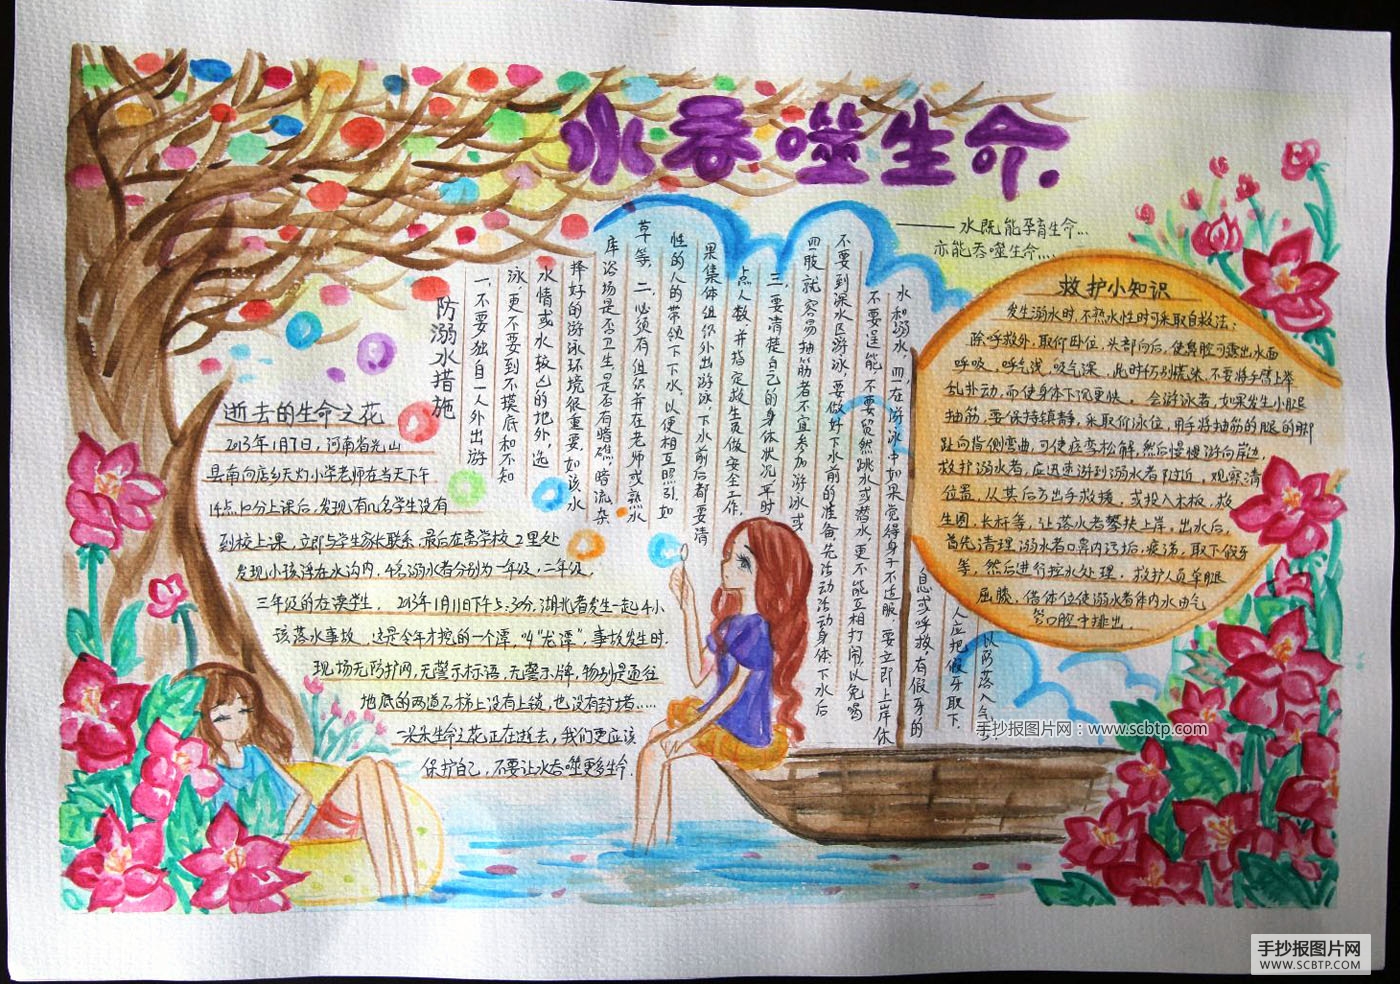 水吞噬生命.
——水既能孕育生命...
亦能吞噬生命....
逝去的生命之花
2013年1月7日，河南省光山
县南向店乡天灯小学老师在当天下午
14点10分上课后，发现有几名学生没有
到校上课，立即与学生家长联系，最后在离学校2里处
发现小孩浮在水沟内，4名溺水者分别为一年级，二年级，
三年级的在读学生，2013年1月11日下午5:30分，湖北省发生一起4小
该落水事故，这是今年才挖的一个潭，叫“龙潭”，事故发生时，
现场无防护网，无警示标语，无警示牌，特别是通往
地底的两道石梯上没有上锁，也没有封堵.....
一朵朵生命之花正在逝去，我们更应该
保护自己，不要让水吞噬更多生命.
防溺水措施
一、不要独自一人外出游
泳，更不要到不摸底和不知
水情或水较凶的地外，选
择好的游泳环境很重要，如该水
库浴场是否卫生，是否有暗礁，暗流，杂
草等。二、必须有组织并在老师或熟水
性的人的带领下下水，以便相互照引，如
果集体组织外出游泳，下水前后都要清
点人数，并指定救生员做安全工作。
三、要清楚自己的身体状况，平时
四肢就容易抽筋者不宜参加游泳或
不要到深水区游泳，要做好下水前的准备，先活动活动身体，下水后
不要逞能，不要贸然跳水或潜水，更不能互相打闹，以免喝
水和溺水，四、在游泳中如果觉得身子不适服，要立即上岸休
息或呼救，有假牙的
人应把假牙取下，
以防落入气
救护小知识
发生溺水时，不熟水性时可采取自救法：
除呼救外，取仰卧位，头部向后，使鼻腔可露出水面
呼吸，呼气浅，吸气深，此时仍别慌张，不要将手臂上举
乱扑动，而使身体下沉更快。会游泳者，如果发生小腿
抽筋，要保持镇静，采取仰泳位，用手将抽筋的腿的脚
趾向背侧弯曲，可使痉挛松解，然后慢慢游向岸边，
救护溺水者，应迅速游到溺水者附近，观察清
位置，从其后方出手救援，或投入木板，救
生圈，长杆等，让落水者攀扶上岸，出水后，
首先清理溺水者口鼻内污垢，痰涕，取下假牙
等，然后进行控水处理，救护人员单腿
屈膝，借体位使溺水者体内水由气
管口腔中排出
手抄报图片网：www.scbtp.com
手抄报图片网
WWW.SCBTP.COM